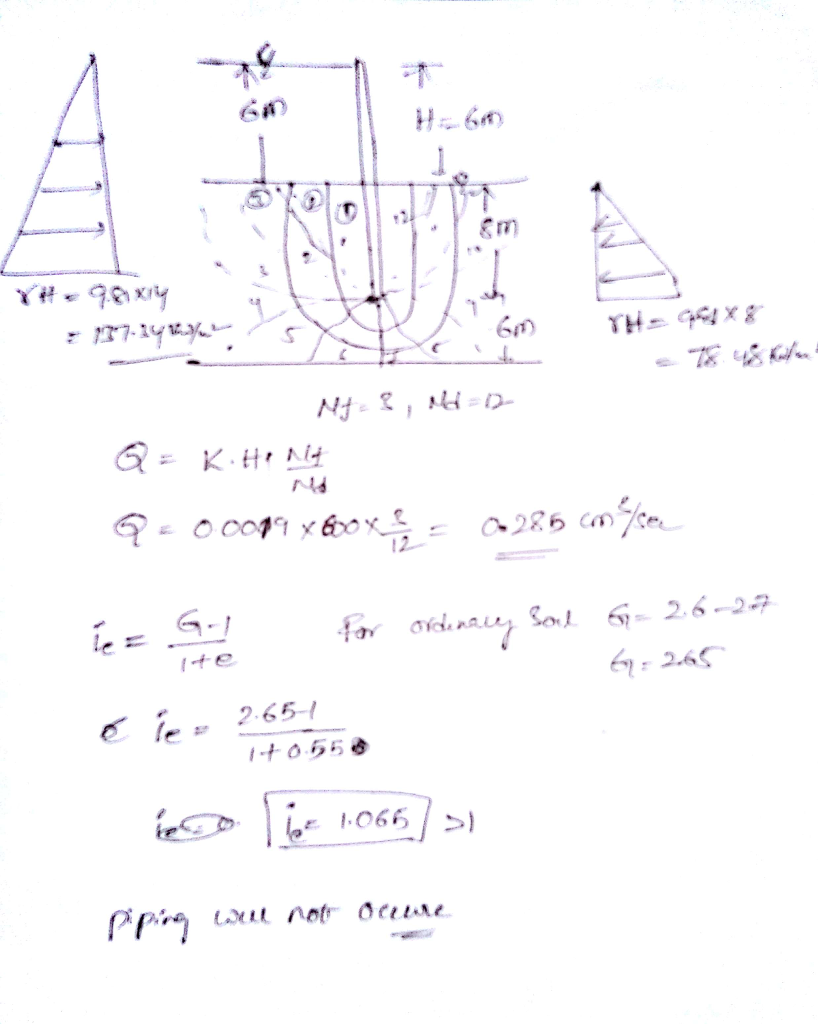 6m
H=6m
8m
6m
γH = 9.81x14
= 137.34 KN/m²
γH = 9.81 x 8
= 78.48 KN/m²
Nf = 3, Nd = 12
Q = K.H. Nf/Nd
Q = 0.0019 x 600 x 3/12 = 0.285 cm³/sec
ic = G-1/1+e For ordinary Soil G = 2.6-2.7
G = 2.65
ic = 2.65-1/1+0.55
ic = 1.065 >1
piping will not occure